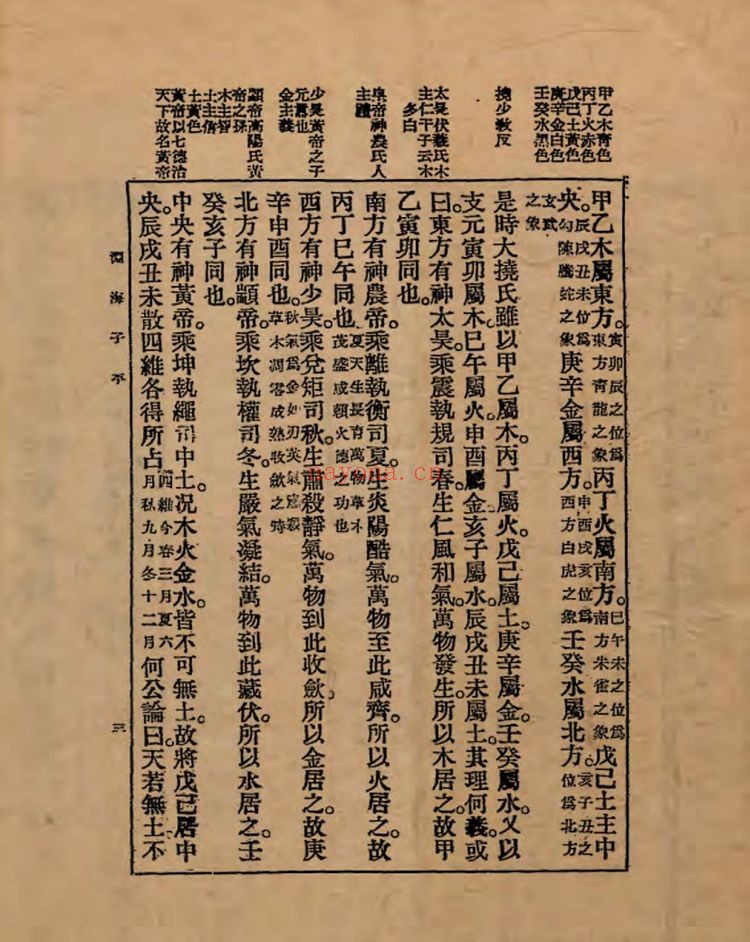 甲乙木青色
丙丁火赤色
戊己土黃色
庚辛金白色
壬癸水黑色
撓少敎反
太昊伏羲氏木
主仁干子云木
多白
帝神農氏人
主禮
少昊黃帝之子
元囂也
金主義
顓帝高陽氏黃
帝之孫
木主智
土主信
土黃色
黃帝以七德治
天下故名黃帝
甲乙木屬東方。寅卯辰之位爲東方靑龍之象丙丁火屬南方。巳午未之位爲南方朱雀之象戊己土主中
央。辰戌丑未位爲勾陳騰蛇之象庚辛金屬西方。申酉戌亥位爲西方白虎之象壬癸水屬北方。亥子丑之位爲北方
玄武之象
是時大撓氏雖以甲乙屬木。丙丁屬火。戊己屬土。庚辛屬金。壬癸屬水。又以
支元寅卯屬木。巳午屬火。申酉屬金。亥子屬水。辰戌丑未屬土。其理何義。或
曰。東方有神太昊。乘震執規司春。生仁風和氣。萬物發生。所以木居之。故甲
乙寅卯同也。
南方有神農帝。乘離執衡司夏。生炎陽酷氣。萬物至此咸齊。所以火居之。故
丙丁巳午同也。夏天生長育萬物草木茂盛咸賴火德之功也
西方有神少昊。乘兌矩司秋。生肅殺靜氣。萬物到此收歛。所以金居之。故庚
辛申酉同也。秋氣爲金如刃英氣肅殺草木凋零成熟收歛之時
北方有神顓帝。乘坎執權司冬。生嚴氣凝結。萬物到此藏伏。所以水居之。壬
癸亥子同也。
中央有神黃帝。乘坤執繩司中土。況木火金水。皆不可無土。故將戊己居中
央。辰戌丑未散四維各得所占四維今春三月夏六月秋九月冬十二月何公論曰。天若無土。不
淵海子平
三
nayona.cn